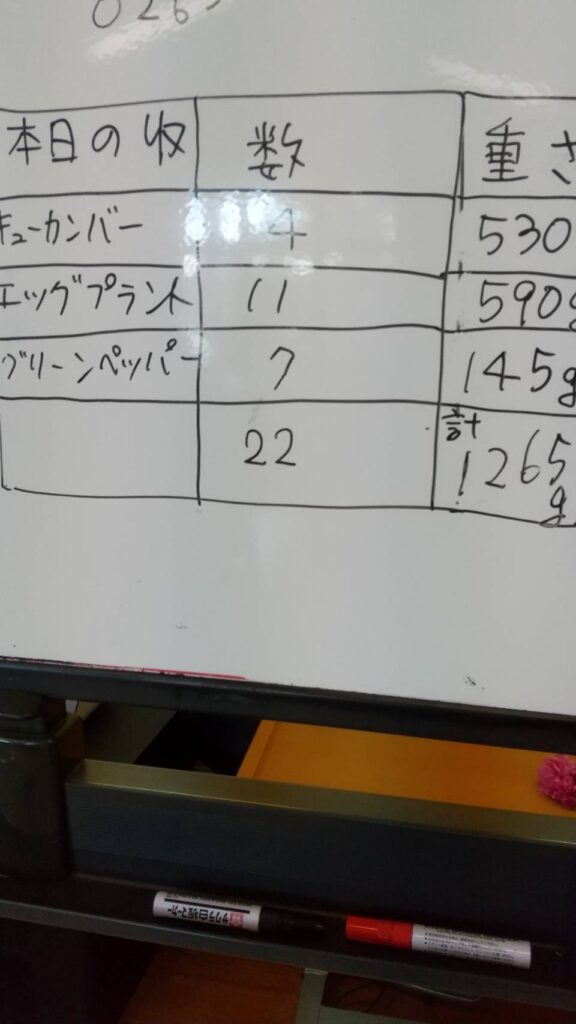 026
本日の収 数 重さ
キューカンバー 4 530
エッグプラント 11 590g
グリーンペッパー 7 145g
22 計 1265g
サクラ白板マーカー